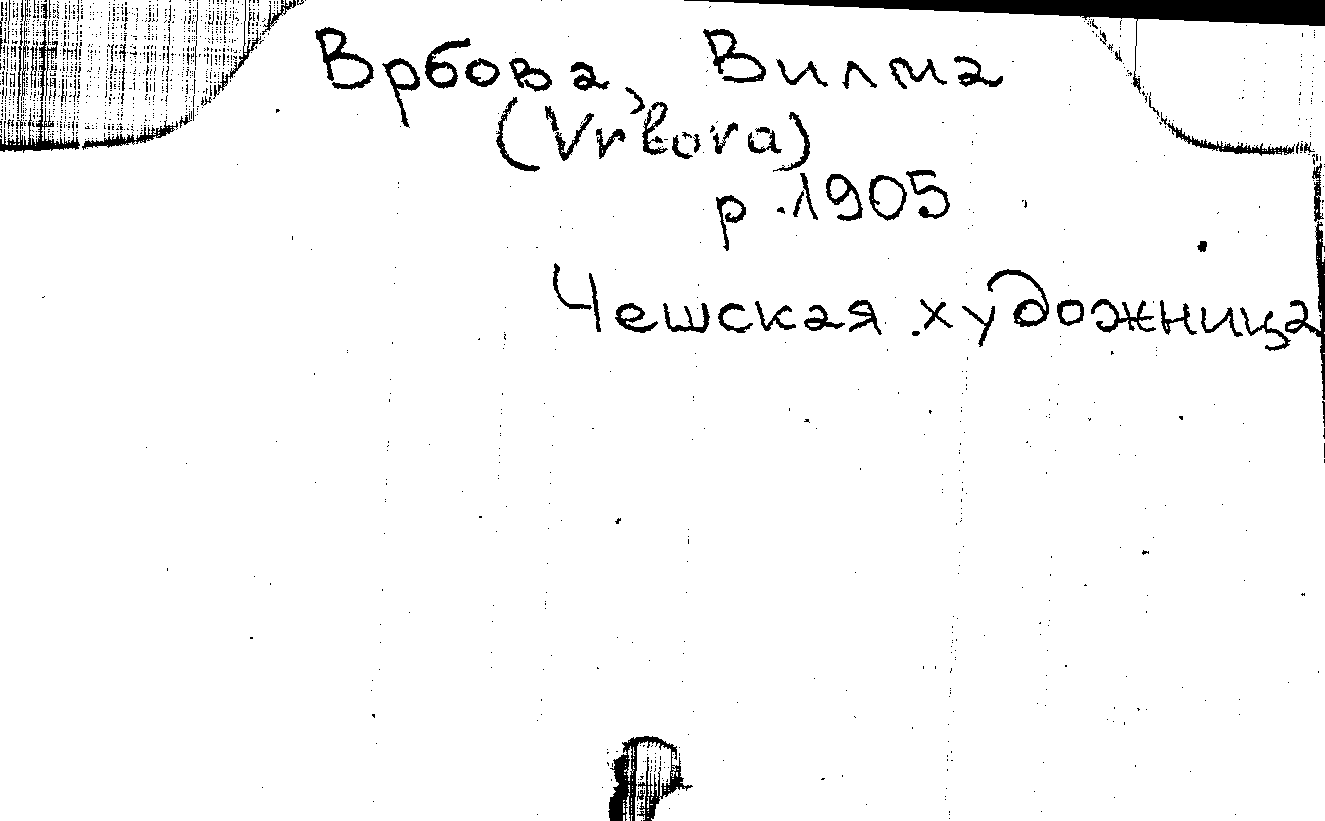 Врбова, Вилма
(Vrbova)
р. 1905
Чешская художница